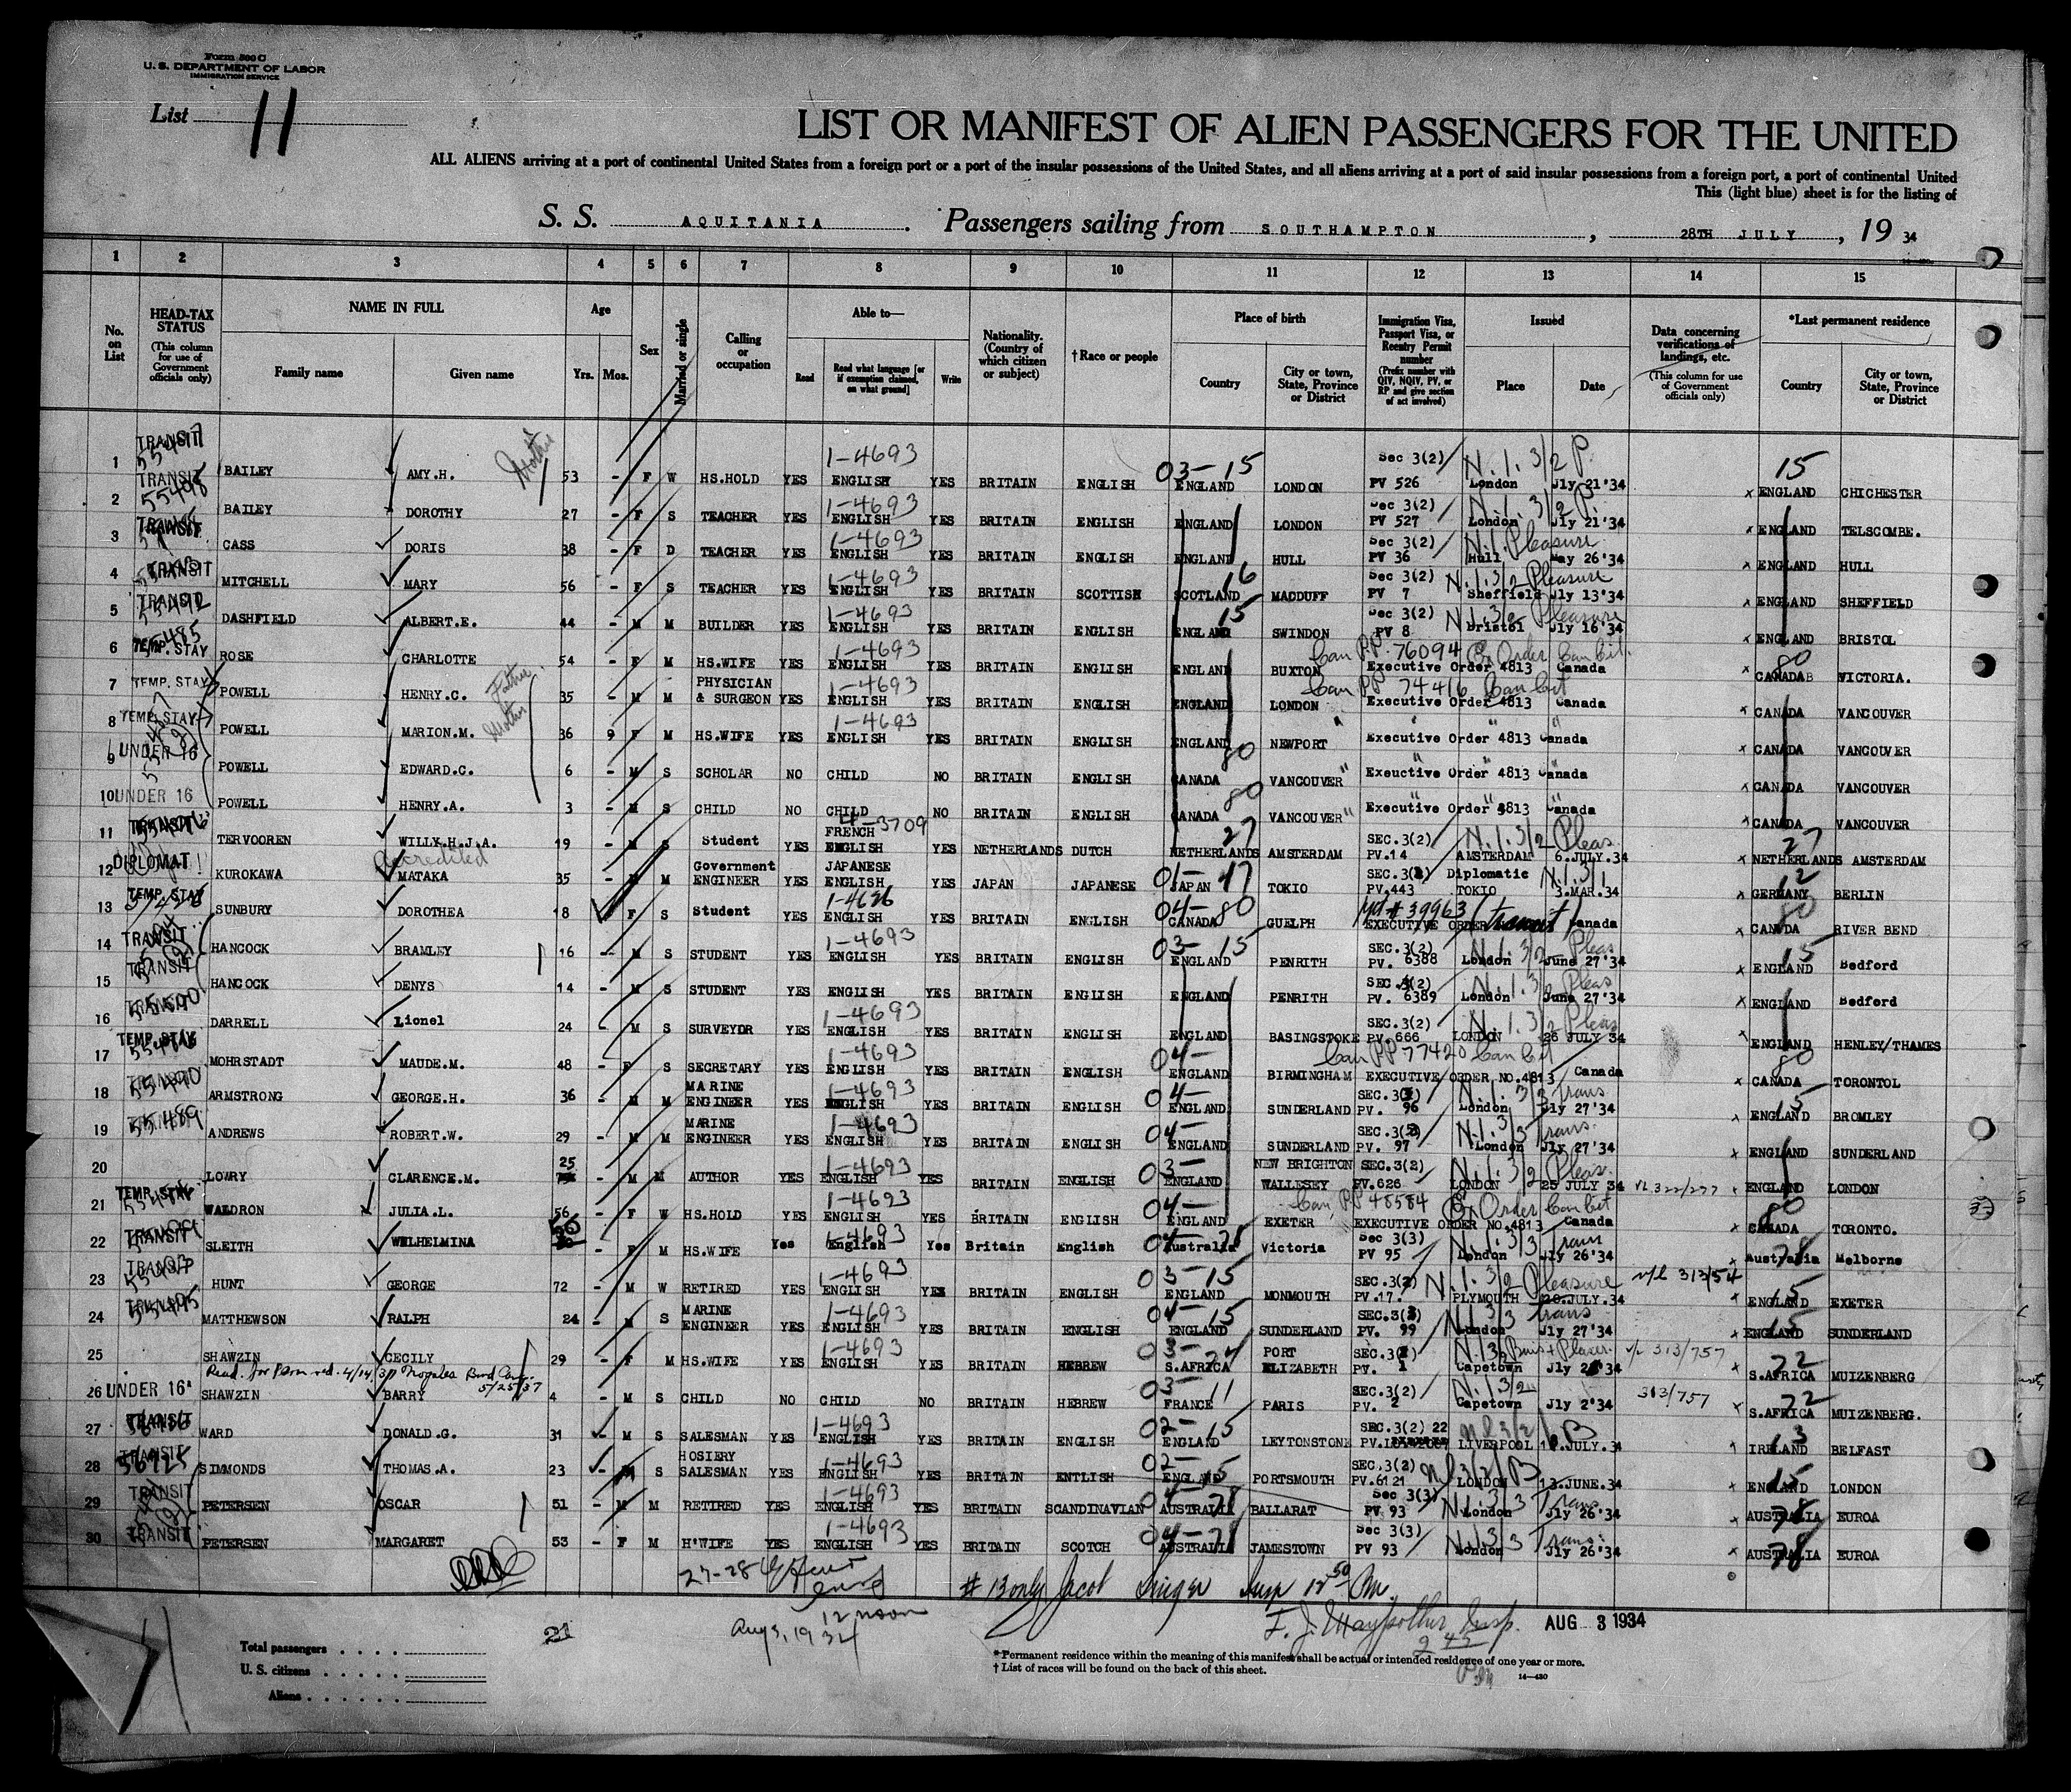 Form 500 C
U. S. DEPARTMENT OF LABOR
IMMIGRATION SERVICE
List 11
LIST OR MANIFEST OF ALIEN PASSENGERS FOR THE UNITED
ALL ALIENS arriving at a port of continental United States from a foreign port or a port of the insular possessions of the United States, and all aliens arriving at a port of said insular possessions from a foreign port, a port of continental United
This (light blue) sheet is for the listing of
S. S. AQUITANIA. Passengers sailing from SOUTHAMPTON, 28TH JULY, 19 34
1 2 3 4 5 6 7 8 9 10 11 12 13 14 15
No. on List
HEAD-TAX STATUS (This column for use of Government officials only)
NAME IN FULL
Family name Given name
Age
Yrs. Mos.
Sex
Married or single
Calling or occupation
Able to—
Read Read what language [or if exemption claimed, on what ground] Write
Nationality. (Country of which citizen or subject)
†Race or people
Place of birth
Country City or town, State, Province or District
Immigration Visa, Passport Visa, or Reentry Permit number (Prefix number with QIV, NQIV, PV, or RP and give section of act involved)
Issued
Place Date
Data concerning verifications of landings, etc. (This column for use of Government officials only)
*Last permanent residence
Country City or town, State, Province or District
1 TRANSIT BAILEY AMY.H. Mother 53 - F W HS.HOLD YES 1-4693 ENGLISH YES BRITAIN ENGLISH 03-15 ENGLAND LONDON Sec 3(2) PV 526 N.1.3/2 P. London Jly 21'34 15 x ENGLAND CHICHESTER
2 TRANSIT 55498 BAILEY DOROTHY 27 - F S TEACHER YES 1-4693 ENGLISH YES BRITAIN ENGLISH ENGLAND LONDON Sec 3(2) PV 527 N.1.3/2 P. London Jly 21'34 x ENGLAND TELSCOMBE.
3 TRANSIT CASS DORIS 38 - F D TEACHER YES 1-4693 ENGLISH YES BRITAIN ENGLISH ENGLAND HULL Sec 3(2) PV 36 N.1. Pleasure Hull May 26'34 x ENGLAND HULL
4 TRANSIT MITCHELL MARY 56 - F S TEACHER YES 1-4693 ENGLISH YES BRITAIN SCOTTISH 16 SCOTLAND MACDUFF Sec 3(2) PV 7 N.1.3/2 Pleasure Sheffield Jly 13'34 x ENGLAND SHEFFIELD
5 TRANSIT DASHFIELD ALBERT.E. 44 - M M BUILDER YES 1-4693 ENGLISH YES BRITAIN ENGLISH 15 ENGLAND SWINDON Sec 3(2) PV 8 N.1.3/2 Pleasure Bristol Jly 16'34 x ENGLAND BRISTOL
6 TEMP. STAY ROSE CHARLOTTE 54 - F M HS.WIFE YES 1-4693 ENGLISH YES BRITAIN ENGLISH ENGLAND BUXTON Can PP. 76094 Ex Order Can Cit. Executive Order 4813 Canada 80 x CANADA VICTORIA.
7 TEMP. STAY POWELL HENRY.C. Father 35 - M M PHYSICIAN & SURGEON YES 1-4693 ENGLISH YES BRITAIN ENGLISH ENGLAND LONDON Can PP 74416 Can Cit Executive Order 4813 Canada x CANADA VANCOUVER
8 TEMP. STAY POWELL MARION.M. Mother 36 9 F M HS.WIFE YES 1-4693 ENGLISH YES BRITAIN ENGLISH ENGLAND NEWPORT " Executive Order 4813 Canada x CANADA VANCOUVER
9 UNDER 16 POWELL EDWARD.C. 6 - M S SCHOLAR NO CHILD NO BRITAIN ENGLISH 80 CANADA VANCOUVER " Exeuctive Order 4813 Canada x CANADA VANCOUVER
10 UNDER 16 POWELL HENRY.A. 3 - M S CHILD NO CHILD NO BRITAIN ENGLISH 80 CANADA VANCOUVER " Executive Order 4813 Canada x CANADA VANCOUVER
11 TRANSIT TERVOOREN WILLY.H.J.A. 19 - M S Student YES 4-3709 FRENCH ENGLISH YES NETHERLANDS DUTCH 27 NETHERLANDS AMSTERDAM SEC.3(2) PV.14 N.1.3/2 Pleas. AMSTERDAM 6.JULY.34 27 x NETHERLANDS AMSTERDAM
12 DIPLOMAT KUROKAWA Accredited MATAKA 35 - M M Government ENGINEER YES JAPANESE ENGLISH YES JAPAN JAPANESE 01-47 JAPAN TOKIO SEC.3( ) PV.443 Diplomatic TOKIO N.1.3/1 3.MAR.34 12 x GERMANY BERLIN
13 TEMP. STAY SUNBURY DOROTHEA 18 F S Student YES 1-4626 ENGLISH YES BRITAIN ENGLISH 04-80 CANADA GUELPH # 39963 EXECUTIVE ORDER (transit) Canada 80 x CANADA RIVER BEND
14 TRANSIT HANCOCK BRAMLEY 16 - M S STUDENT YES 1-4693 ENGLISH YES BRITAIN ENGLISH 03-15 ENGLAND PENRITH SEC.3(2) PV. 6388 N.1.3/2 Pleas London June 27'34 15 x ENGLAND Bedford
15 TRANSIT HANCOCK DENYS 14 - M S STUDENT YES ENGLISH YES BRITAIN ENGLISH ENGLAND PENRITH SEC.3(2) PV. 6389 N.1.3/2 Pleas London June 27'34 x ENGLAND Bedford
16 TRANSIT DARRELL Lionel 24 - M S SURVEYOR YES 1-4693 ENGLISH YES BRITAIN ENGLISH ENGLAND BASINGSTOKE SEC.3(2) PV.666 N.1.3/2 Pleas LONDON 26 JULY 34 ENGLAND HENLEY/THAMES
17 TEMP. STAY MOHRSTADT MAUDE.M. 48 - F S SECRETARY YES 1-4693 ENGLISH YES BRITAIN ENGLISH 04- ENGLAND BIRMINGHAM Can PP 77420 Can Cit EXECUTIVE ORDER NO.4813 Canada 80 x CANADA TORONTOL
18 55490 ARMSTRONG GEORGE.H. 36 - M M MARINE ENGINEER YES 1-4693 ENGLISH YES BRITAIN ENGLISH 04- ENGLAND SUNDERLAND SEC.3(3) PV. 96 N.1.3/3 Trans London Jly 27'34 15 x ENGLAND BROMLEY
19 55489 ANDREWS ROBERT.W. 29 - M M MARINE ENGINEER YES 1-4693 ENGLISH YES BRITAIN ENGLISH 04- ENGLAND SUNDERLAND SEC.3(3) PV. 97 N.1.3/3 Trans. London Jly 27'34 x ENGLAND SUNDERLAND
20 LOWRY CLARENCE.M. 25 - M M AUTHOR YES 1-4693 ENGLISH YES BRITAIN ENGLISH 03- ENGLAND NEW BRIGHTON WALLESEY SEC.3(2) PV.626 N.1.3/2 Pleas. LONDON 25 JULY 34 VL 322/277 x ENGLAND LONDON
21 TEMP. STAY WALDRON JULIA.L. 56 - F W HS.HOLD YES 1-4693 ENGLISH YES BRITAIN ENGLISH 04- ENGLAND EXETER Can PP 48584 Ex Order Can Cit EXECUTIVE ORDER NO.4813 Canada 80 x CANADA TORONTO.
22 TRANSIT SLEITH WILHELMINA 50 - F M HS.WIFE Yes 1-4693 English Yes Britain English 04-78 Australia Victoria Sec 3(3) PV 95 N.1.3/3 Tran London Jly 26'34 78 x Australia Melborne
23 TRANSIT HUNT GEORGE 72 - M W RETIRED YES 1-4693 ENGLISH YES BRITAIN ENGLISH 03-15 ENGLAND MONMOUTH SEC.3(2) PV.17. N.1.3/2 Pleasure PLYMOUTH 20.JULY.34 v/l 313/54 15 x ENGLAND EXETER
24 TRANSIT MATTHEWSON RALPH 24 - M S MARINE ENGINEER YES 1-4693 ENGLISH YES BRITAIN ENGLISH 04-15 ENGLAND SUNDERLAND SEC.3(3) PV. 99 N.1.3/3 Trans London Jly 27'34 15 x ENGLAND SUNDERLAND
25 SHAWZIN CECILY 29 - F M HS.WIFE YES 1-4693 ENGLISH YES BRITAIN HEBREW 03- S.AFRICA PORT ELIZABETH SEC.3(2) PV. 1 N.1.3/2 Bus + Pleasr. Capetown Jly 2'34 v/l 313/757 72 x S.AFRICA MUIZENBERG
Nogales 5/25/37
26 UNDER 16 SHAWZIN BARRY 4 - M S CHILD NO CHILD NO BRITAIN HEBREW 03-11 FRANCE PARIS SEC.3(2) PV. 2 N.1.3/2 Capetown Jly 2'34 313/757 72 x S.AFRICA MUIZENBERG.
27 TRANSIT WARD DONALD.G. 31 - M S SALESMAN YES 1-4693 ENGLISH YES BRITAIN ENGLISH 02-15 ENGLAND LEYTONSTONE SEC.3(2) 22 N.1.3/2 B LIVERPOOL JULY.34 13 IRELAND BELFAST
28 TRANSIT 56925 SIMMONDS THOMAS.A. 23 - M S HOSIERY SALESMAN YES 1-4693 ENGLISH YES BRITAIN ENTLISH 02-15 ENGLAND PORTSMOUTH SEC.3(2) PV.6121 N.1.3/2 B LONDON 13.JUNE.34 15 x ENGLAND LONDON
29 TRANSIT PETERSEN OSCAR 51 - M M RETIRED YES 1-4693 ENGLISH YES BRITAIN SCANDINAVIAN 04-78 AUSTRALIA BALLARAT Sec 3(3) PV 93 N.1.3/3 Trans London Jly 26'34 78 x AUSTRALIA EUROA
30 TRANSIT PETERSEN MARGARET 53 - F M H'WIFE YES 1-4693 ENGLISH YES BRITAIN SCOTCH 04-78 AUSTRALIA JAMESTOWN Sec 3(3) PV 93 N.1.3/3 Trans. London Jly 26'34 78 x AUSTRALIA EUROA
27-28
# 13 only Jacob Singer Insp 12 50 Pm.
12 noon
Aug 3, 1934
21
Insp.
2 45 Pm
AUG 3 1934
Total passengers
U. S. citizens
Aliens
*Permanent residence within the meaning of this manifest shall be actual or intended residence of one year or more.
† List of races will be found on the back of this sheet.
14—430